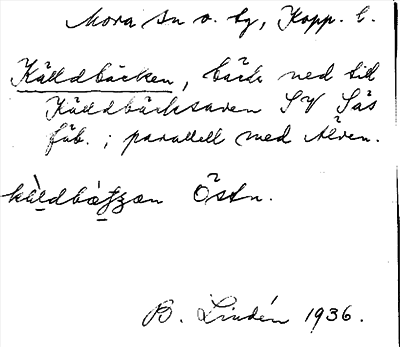 Mora sn o. by, Kopp. l.
Källdbäcken, bäck ned till
Källdbäcksaven SV Sås
fäb.; parallell med Älven.
Östn.
B. Lindén 1936.